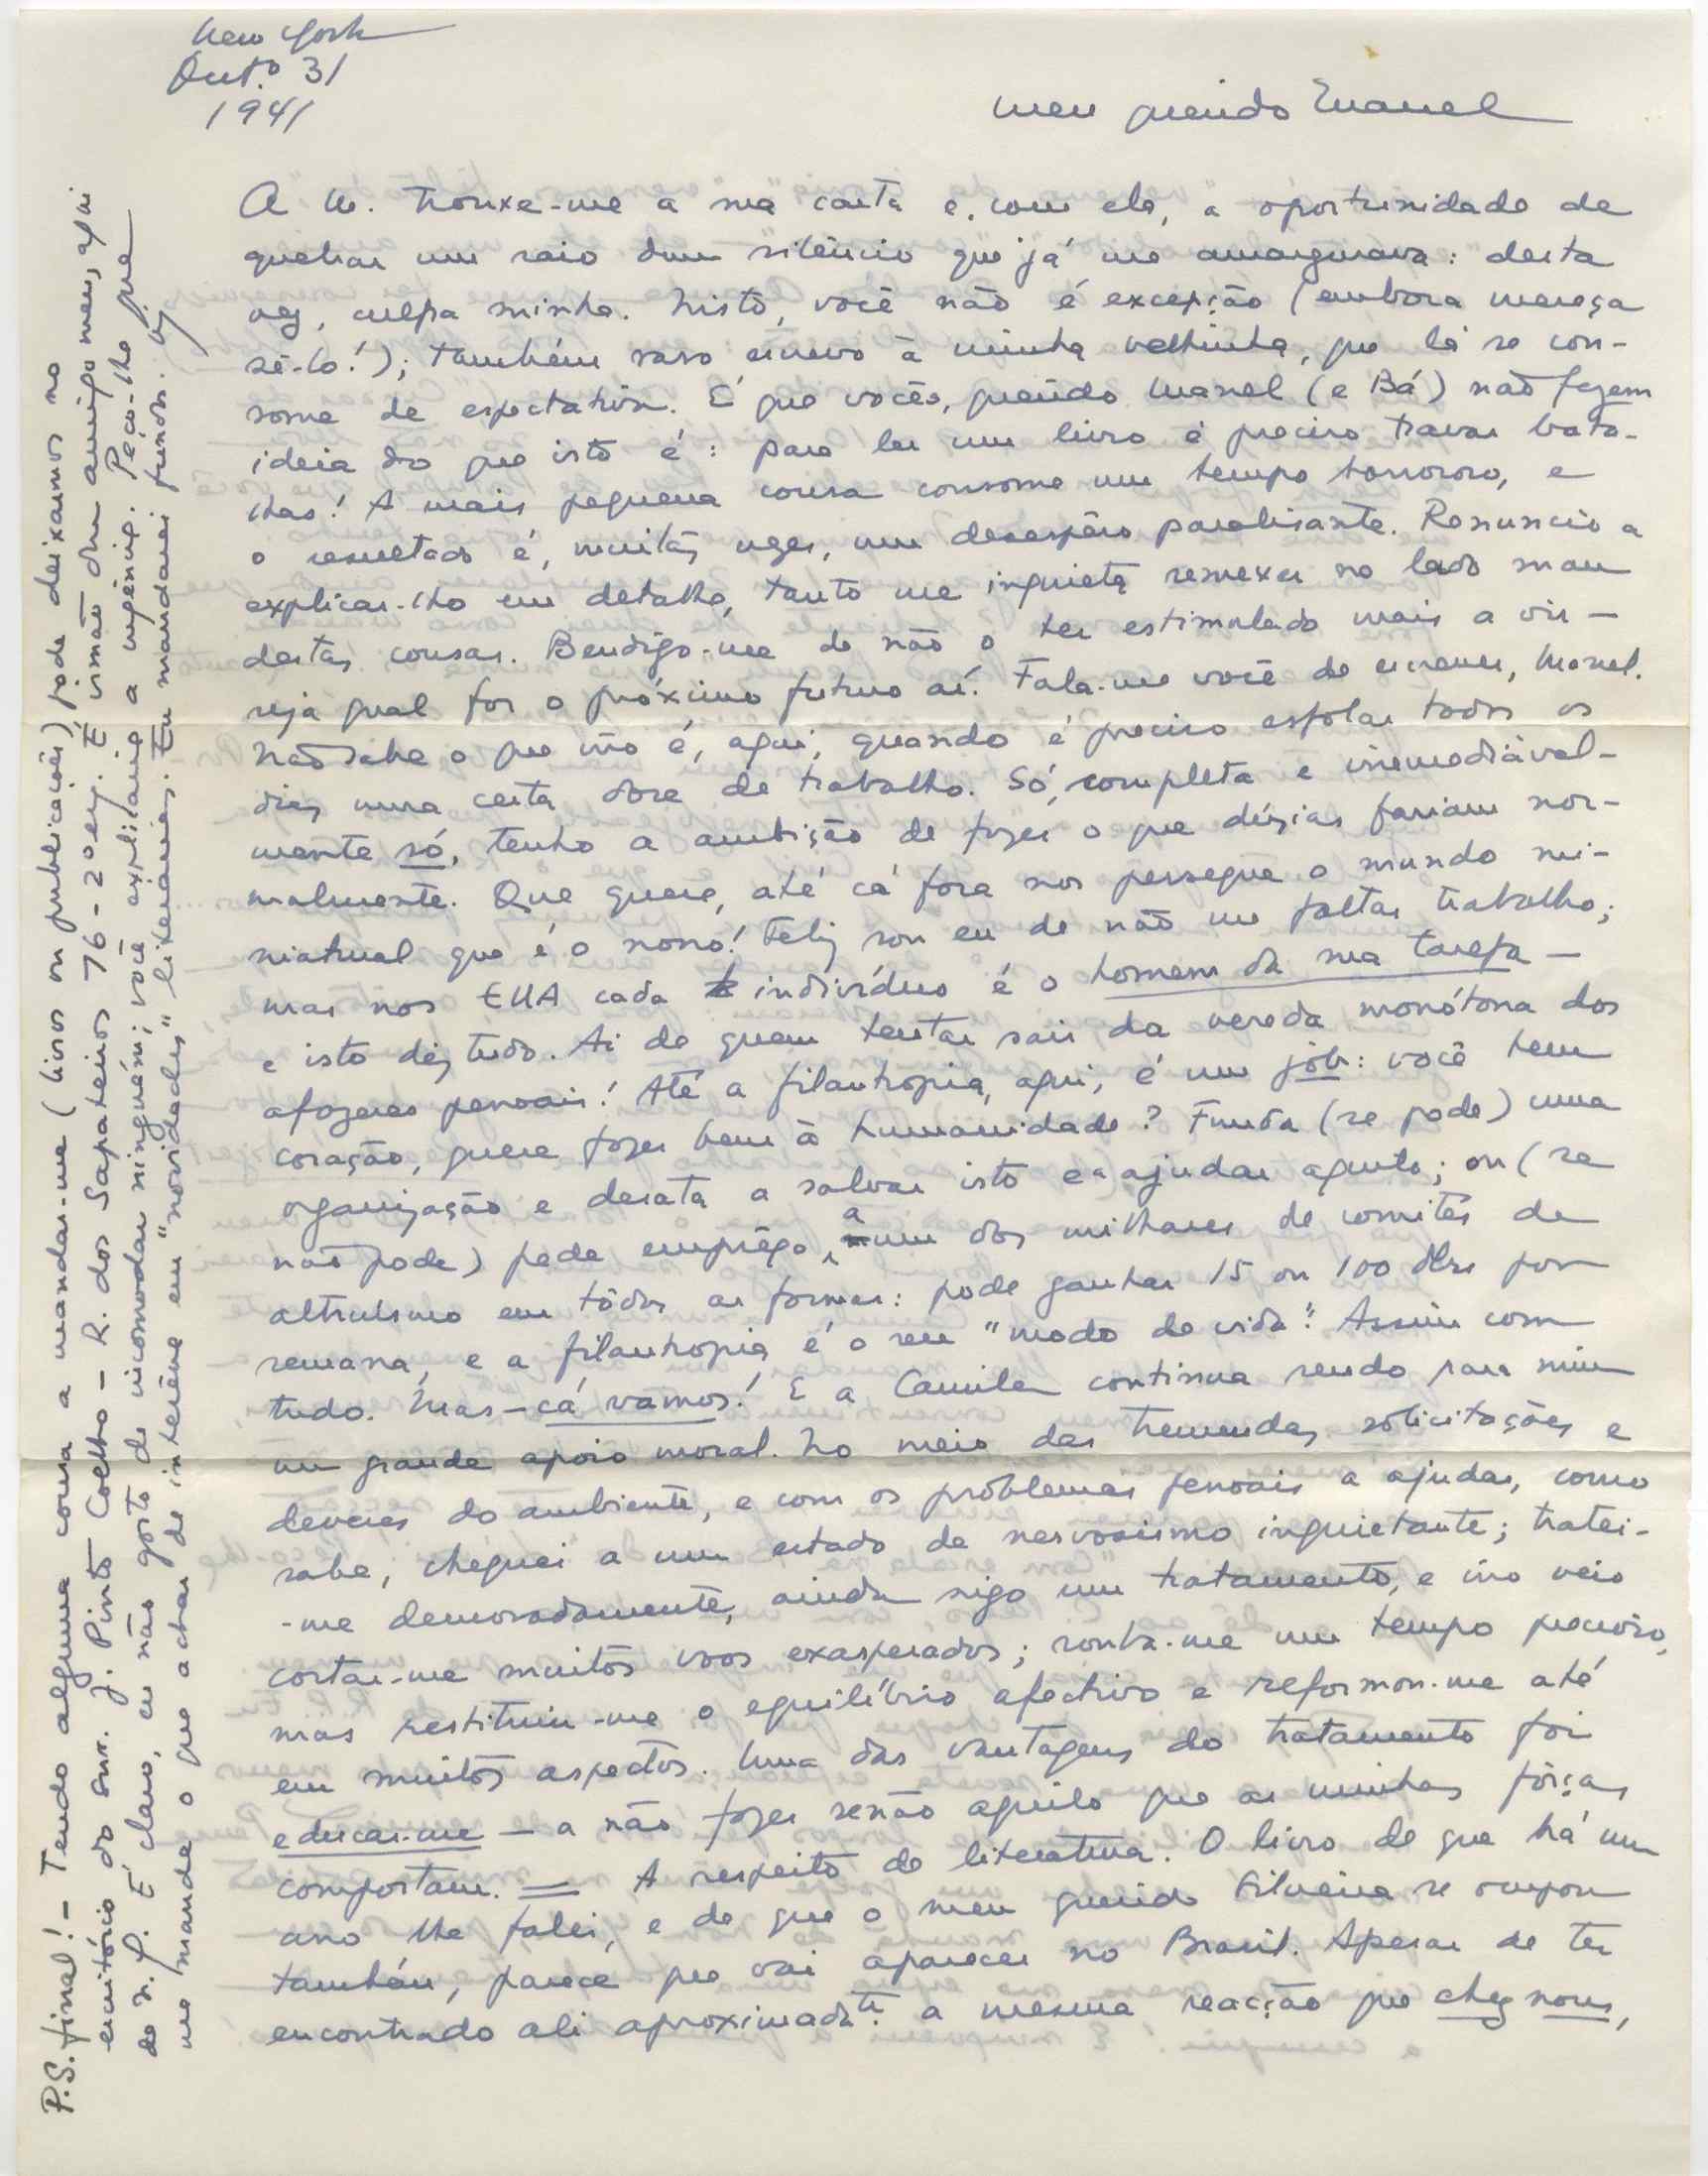 New York
Outº 31
1941
Meu querido Manuel
A M. trouxe-me a sua carta e, com ela, a oportunidade de
quebrar um raio dum silêncio que já me amargurava: desta
vez, culpa minha. Nisto, você não é excepção (embora mereça
sê-lo!); também raro escrevo à minha velhinha, que lá se con-
some de espectativa. É que vocês, querido Manel (e Bá) não fazem
ideia do que isto é: para ler um livro é preciso travar bata-
lhas! A mais pequena cousa consome um tempo horroroso, e
o resultado é, muitas vezes, um desespêro paralisante. Renuncio a
explicar-lho em detalhe, tanto me inquieta remexer no lado mau
destas cousas. Bendigo-me de não o ter estimulado mais a vir —
seja qual for o próximo futuro aí. Fala-me você de escrever, Manel.
Não sabe o que isso é, aqui, quando é preciso esfolar todos os
dias uma certa dose de trabalho. Só, completa e irremediàvel-
mente só, tenho a ambição de fazer o que dúzias fariam nor-
malmente. Que quere, até cá fora nos persegue o mundo mi-
niatural que é o nosso! Feliz sou eu de não me faltar trabalho;
mas nos EUA cada indivíduo é o homem da sua tarefa —
e isto diz tudo. Ai de quem tentar sair da vereda monótona dos
afazeres pessoais! Até a filantropia, aqui, é um job: você tem
coração, quere fazer bem à humanidade? Funda (se pode) uma
organização e desata a salvar isto e a ajudar aquilo; ou (se
não pode) pede emprêgo a um dos milhares de comités de
altruísmo em tôdas as formas: pode ganhar 15 ou 100 dlrs por
semana, e a filantropia é o seu "modo de vida". Assim com
tudo. Mas — cá vamos! E a Camila continua sendo para mim
um grande apoio moral. No meio das tremendas solicitações e
deveres do ambiente, e com os problemas pessoais a ajudar, como
sabe, cheguei a um estado de nervosismo inquietante; tratei-
-me demoradamente, ainda sigo um tratamento, e isso veio
cortar-me muitos voos exasperados; rouba-me um tempo precioso,
mas restituiu-me o equilíbrio afectivo e reformou-me até
em muitos aspectos. Uma das vantagens do tratamento foi
educar-me — a não fazer senão aquilo que as minhas fôrças
comportam. = A respeito de literatura. O livro de que há um
ano lhe falei, e de que o meu querido Silveira se ocupou
também, parece que vai aparecer no Brasil. Apesar de ter
encontrado ali aproximadte. a mesma reacção que chez nous,
P.S. final! — Tendo alguma cousa a mandar-me (livros ou publicações) pode deixarmos no
escritório do Snr. J. Pinto Coelho — R. dos Sapateiros 76-2º esq. É irmão dum amigo meu, aqui
de N.Y. É claro, eu não gosto de incomodar ninguém; você explicaria a urgência. Peço-lhe que
me mande o que achar de interêsse em "novidades" literárias. Eu mandarei fundos.